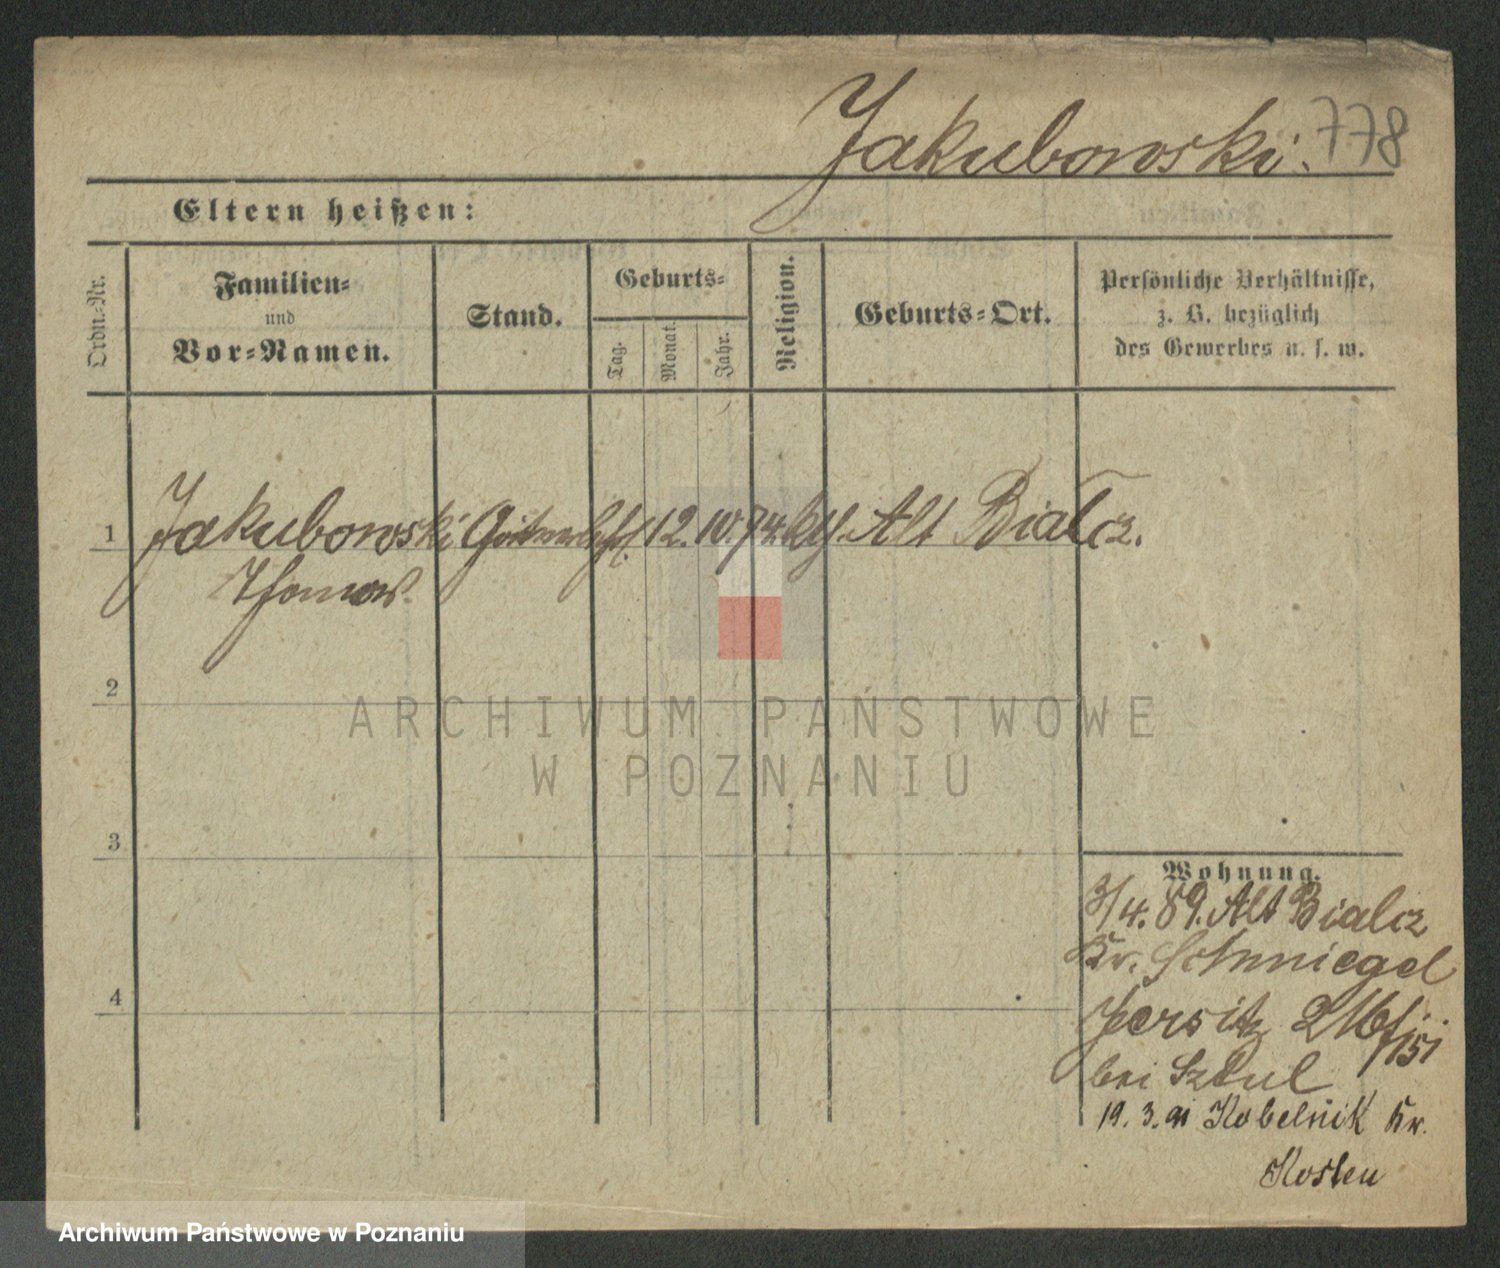 Jakubowski. 778
Eltern heißen:
Ordn.-Nr.
Familien-
und
Vor-Namen.
Stand.
Geburts-
Tag.
Monat.
Jahr.
Religion.
Geburts-Ort.
Persönliche Verhältnisse,
z. B. bezüglich
des Gewerbes u. s. w.
1 Jakubowski 12. 10. 74. kth. Alt Bialcz.
Thomas.
2
3
4
ARCHIWUM PAŃSTWOWE
W POZNANIU
Wohnung.
3/4. 89. Alt Bialcz
Kr. Schmiegel
Jersitz
bei
19. 3. 91 Kobelnik Kr.
Kosten
Archiwum Państwowe w Poznaniu